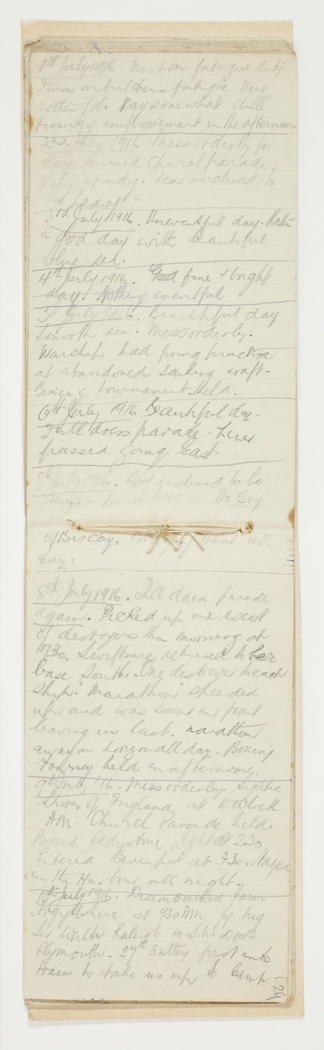 1st July 1916. Unit on fatigue duty
I was on butchers fatigue very
rotten job. Day somewhat dull
improvement in the afternoon
2nd July 1916. Mess orderly for
day missed Church parade.
Very windy. Seas inclined to
be
3rd July 1916. Uneventful day. Rather
a good day with beautiful
blue sea.
4th July 1916. Good fine & bright
day. Nothing eventful
5th July 1916. Beautiful day
smooth sea. Mess orderly.
Warship had firing practice
at abandoned sailing craft.
Boxing tournament held.
6th July 1916 Beautiful day.
Full dress parade. Liner
passed going East.
7th July 1916. Day inclined to be
in the Bay
of Biscay. all
day.
8th July 1916. Full dress parade
again. Picked up one escort
of destroyers this morning at
10/30. Swiftsure returned to her
base South. One destroyer each
ship. Marathon speeded
up and was soon in front
leaving us last. Marathon
away on horizon all day. Boxing
Tourney held in afternoon.
9th July '16. Mess orderly sighted
shores of England at 10 o'clock
AM. Church Parade held.
Passed Eddystone light at 2.30
Entered Devonport at 3.30.
in the Harbour all night.
10th July 1916. Disembarked from
at 9.30 AM by tug
Sir Walter Raleigh to S.W. Docks
Plymouth. 27th Battery first into
train to take us up to Camp
(24